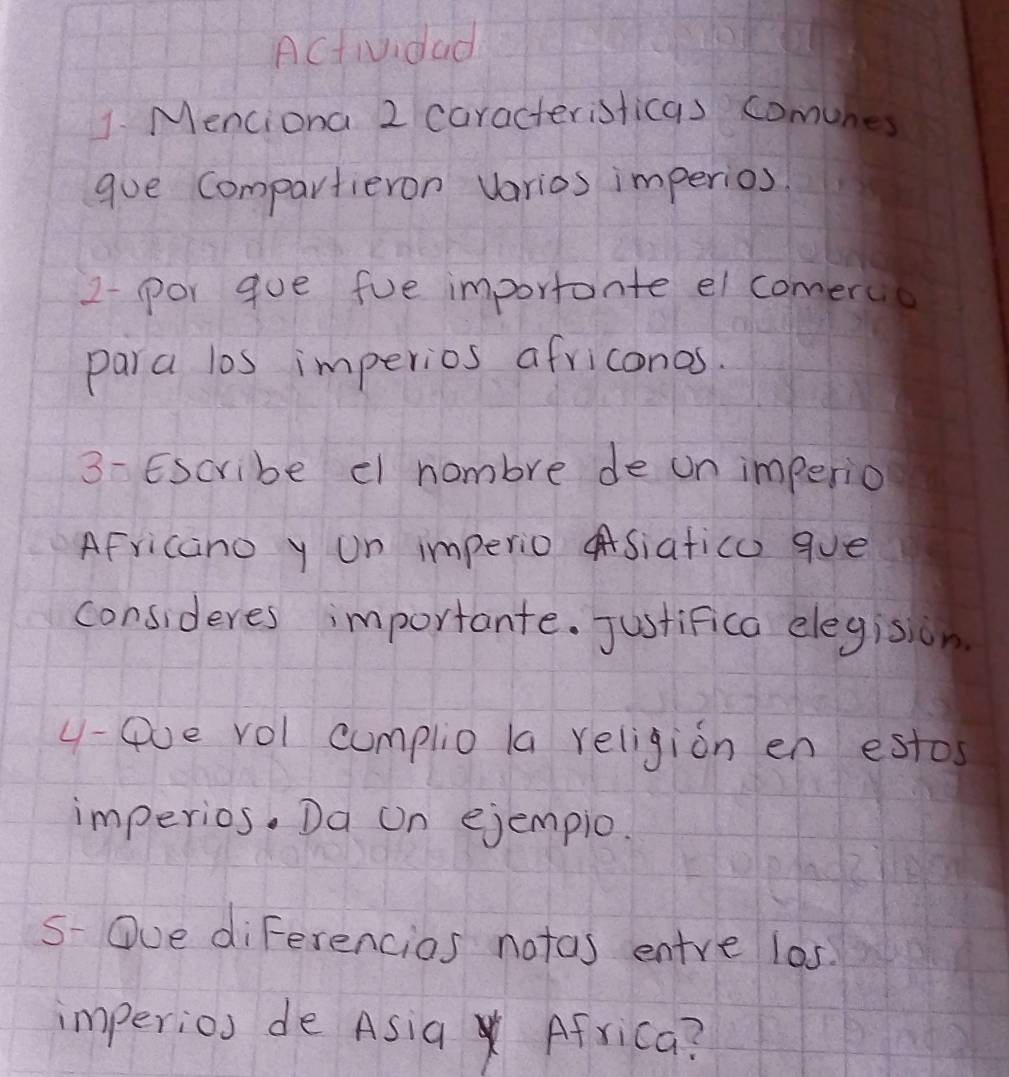 Actividad
1- Menciona 2 caracteristicas comunes
que compartieron varios imperios.
2- por que fue importante el comercio
para los imperios africanos.
3- Escribe el nombre de un imperio
Africano y un imperio Asiatico que
consideres importante. Justifica elegisión.
4- Que rol cumplio la religión en estos
imperios. Da un ejemplo.
5- Que diferencias notas entre los.
imperios de Asia y Africa?